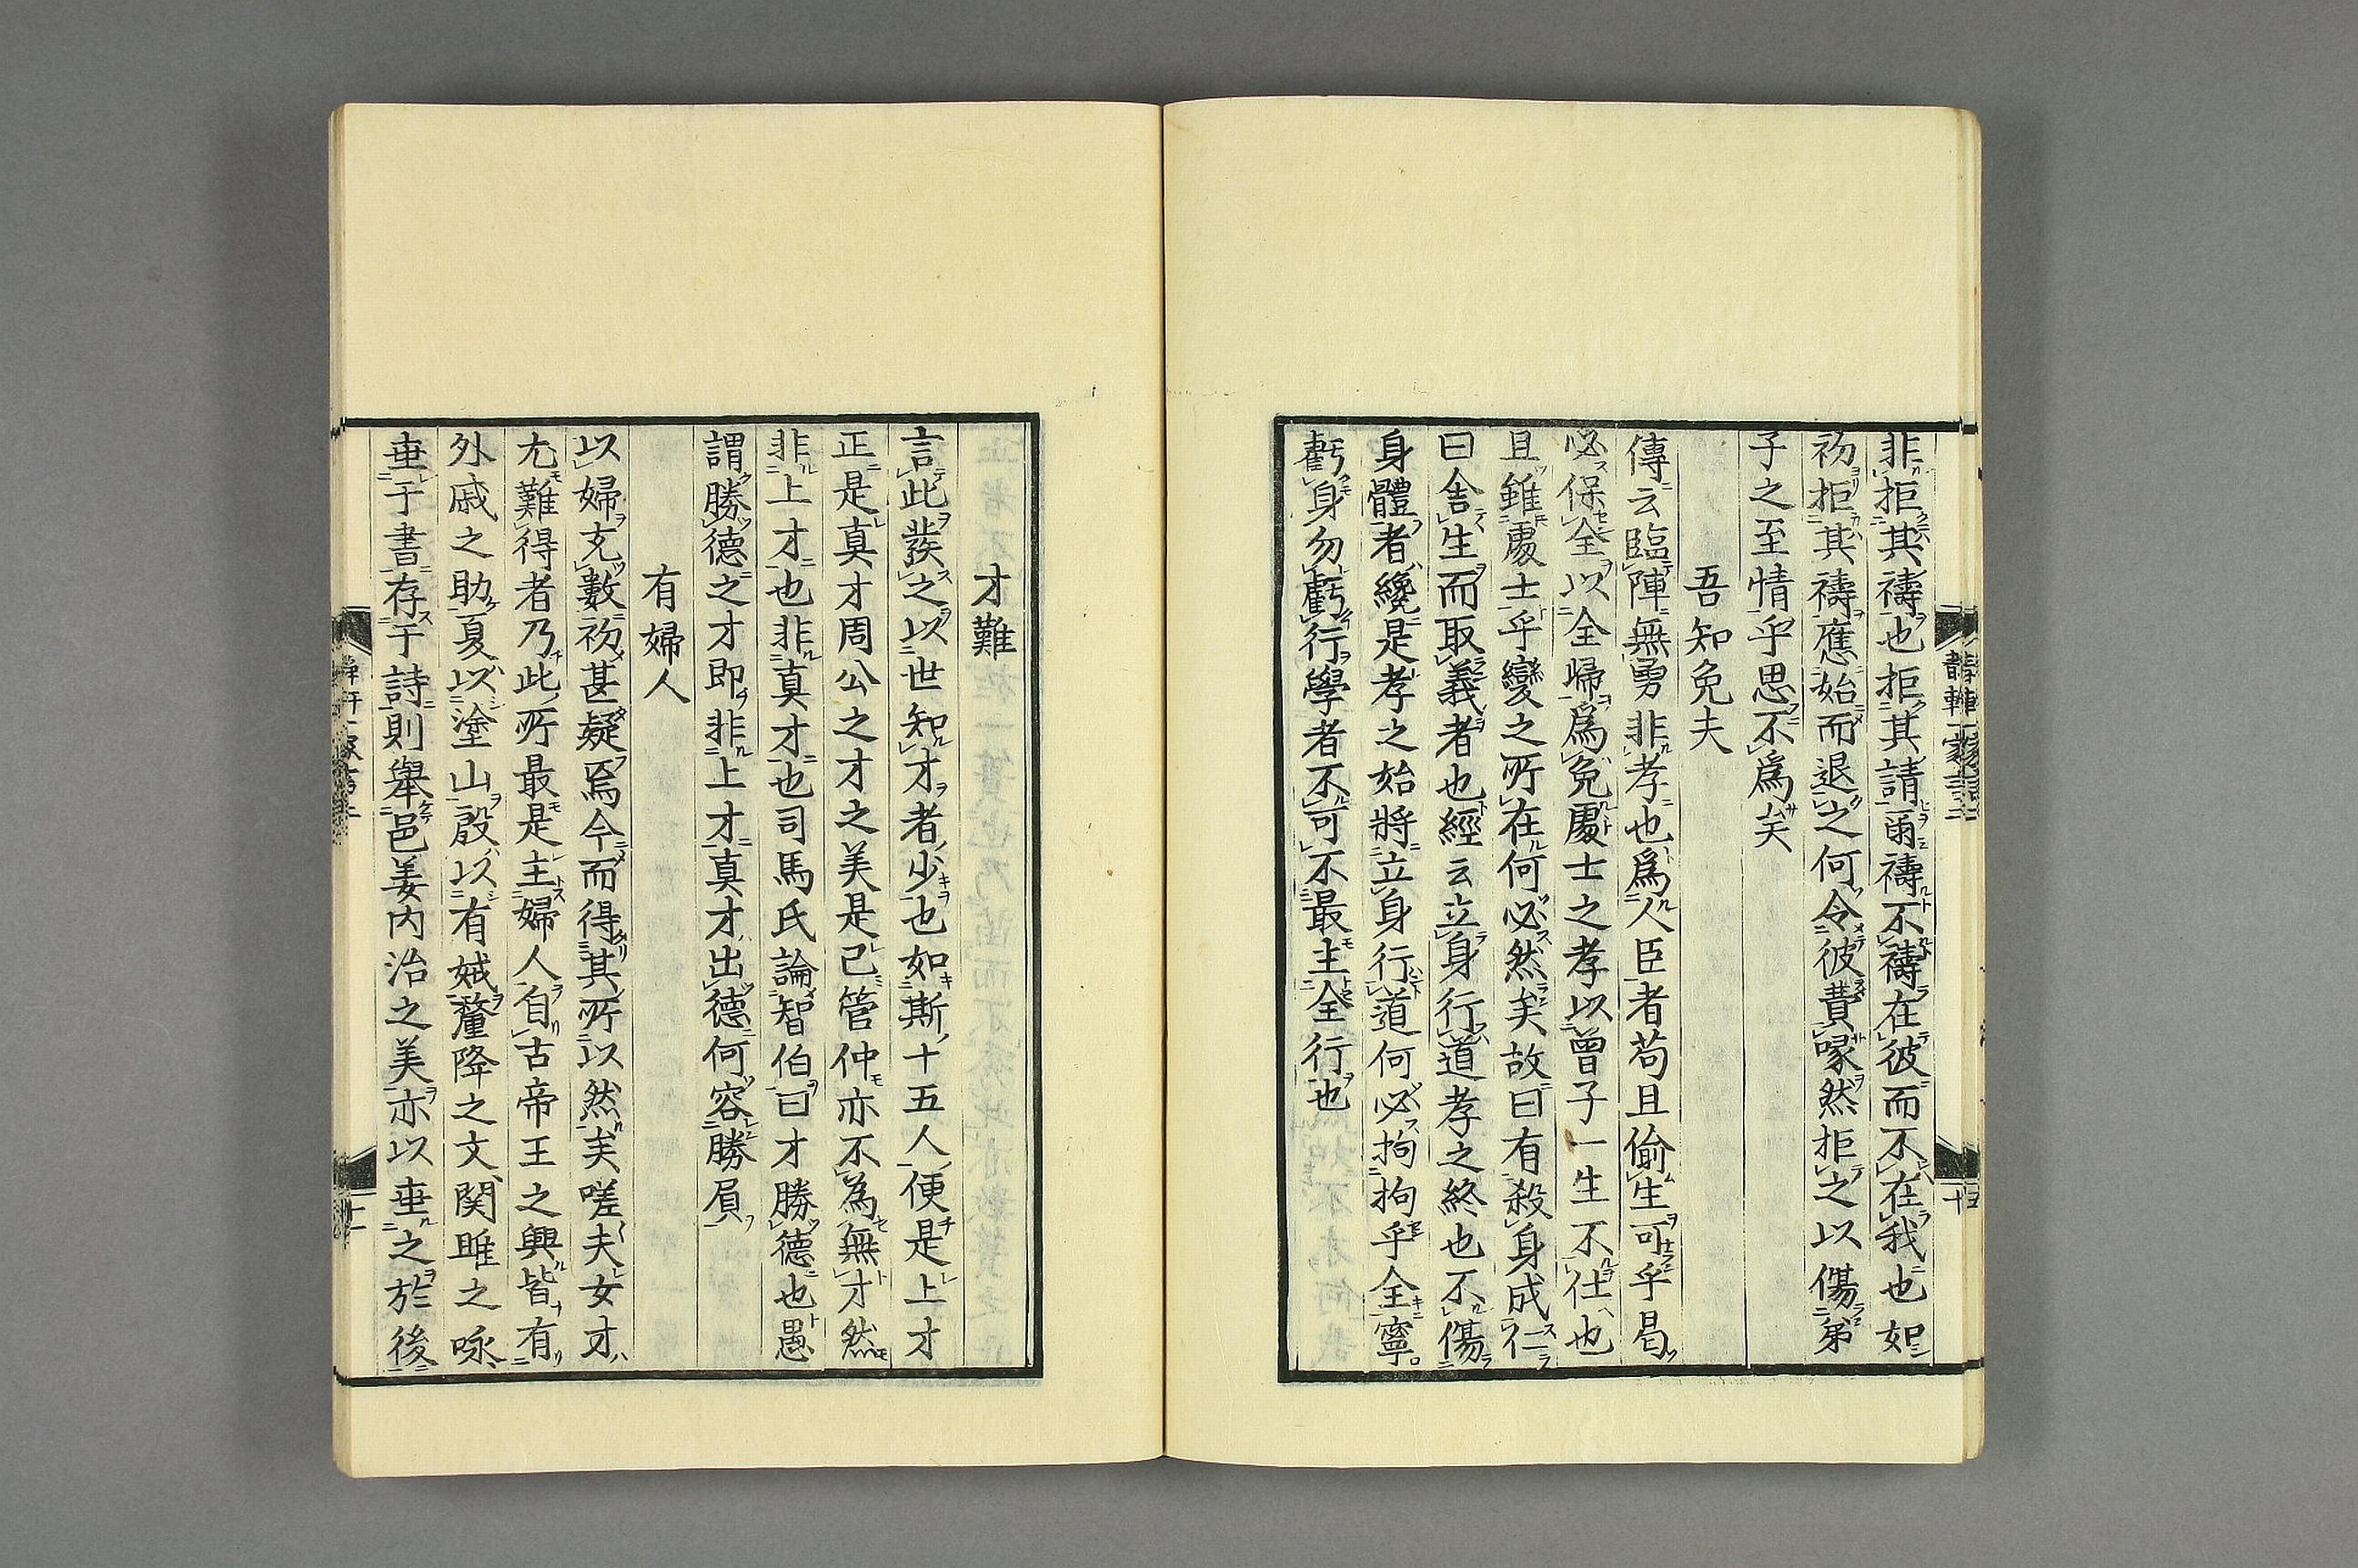 非拒其禱也拒其請爾禱不禱在彼而不在我也如
初拒其禱應始而退之何令彼費喙然拒之以傷弟
子之至情乎思不爲矣
吾知免夫
傳云臨陣無勇非孝也爲人臣者苟且偷生可乎曷
必保全以全歸爲免處士之孝以曾子一生不仕也
且雖處士乎變之所在何必然矣故曰有殺身成仁
曰舍生而取義者也經云立身行道孝之終也不傷
身體者纔是孝之始將立身行道何必拘拘乎全寧
虧身勿虧行學者不可不最主全行也
才難
言此蓋之以世知才者少也如斯十五人便是上才
正是真才周公之才之美是已管仲亦不為無才然
非上才也非真才也司馬氏論智伯曰才勝德也愚
謂勝德之才即非上才真才出德何容勝屓
有婦人
以婦充數初甚疑焉今而得其所以然矣嗟夫女才
尤難得者乃此所最是主婦人自古帝王之興皆有
外戚之助夏以塗山殷以有娀釐降之文関雎之咏
垂于書存于詩則舉邑姜内治之美亦以垂之於後